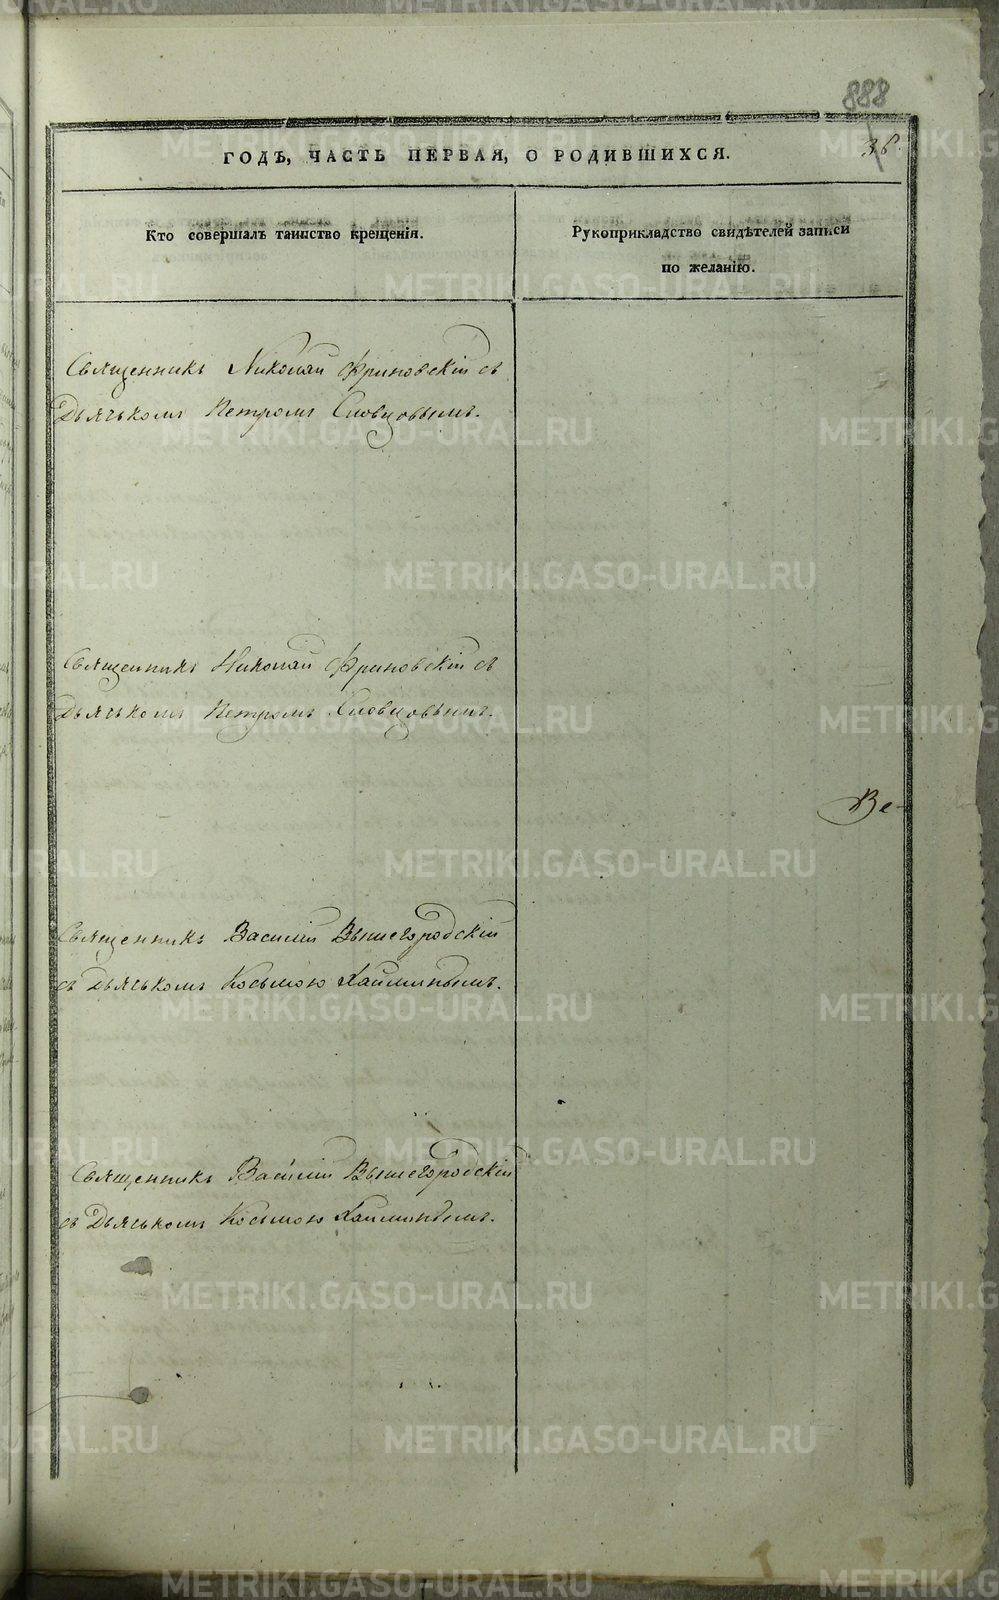 888
38.
ГОДЪ, ЧАСТЬ ПЕРВАЯ, О РОДИВШИХСЯ.
Кто совершалъ таинство крещенія.
Рукоприкладство свидѣтелей записи
по желанію.
Священникъ Николай Фриновскій съ
Дьячькомъ Петромъ Словцовымъ.
Священникъ Николай Фриновскій съ
Дьячькомъ Петромъ Словцовымъ.
Ве-
Священникъ Василій Вышегородскій
съ Дьячькомъ Косьмою
Священникъ Василій Вышегородскій
съ Дьячькомъ Косьмою
METRIKI.GASO-URAL.RU